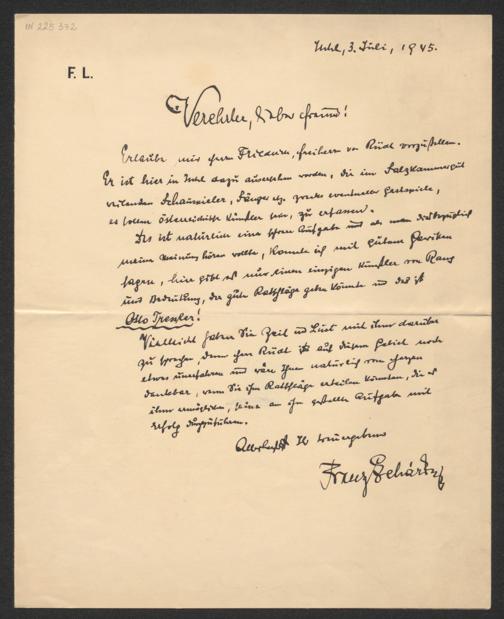 IN 225 372
Ischl, 3. Juli, 1945.
F. L.
Verehrter, lieber Freund!
Erlaube mir Herrn Friedrich, Freiherr von Rüdt vorzustellen.
Er ist hier in Ischl dazu ausersehen worden, die im Salzkammergut
weilenden Schauspieler, Sänger etz. zwecks eventueller Gastspiele,
es sollen österreichische Künstler sein, zu erfassen.
Das ist natürlich eine schwere Aufgabe und als man diesbezüglich
meine Meinung hören wollte, konnte ich mit gutem Gewissen
sagen, hier gibt es nur einen einzigen Künstler von Rang
und Bedeutung, der gute Ratschläge geben könnte und das ist
Otto Tressler!
Vielleicht haben Sie Zeit und Lust mit ihm darüber
zu sprechen, denn Herr Rüdt ist auf diesem Gebiet noch
etwas unerfahren und wäre Ihnen natürlich von Herzen
dankbar, wenn Sie ihm Ratschläge erteilen könnten, die es
ihm ermöglichen, seine an ihn gestellte Aufgabe mit
Erfolg durchzuführen.
Allerherzlichst Ihr treuergebener
Franz Lehár